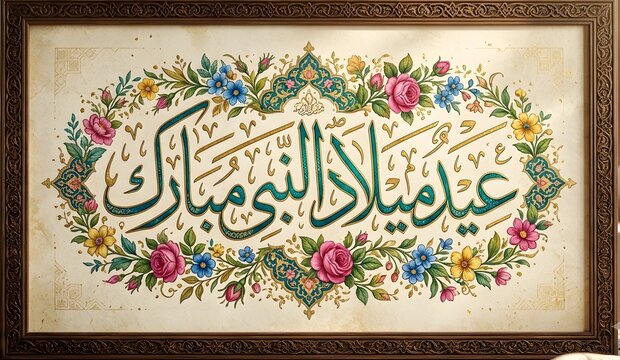 عيد ميلاد النبي مبارك